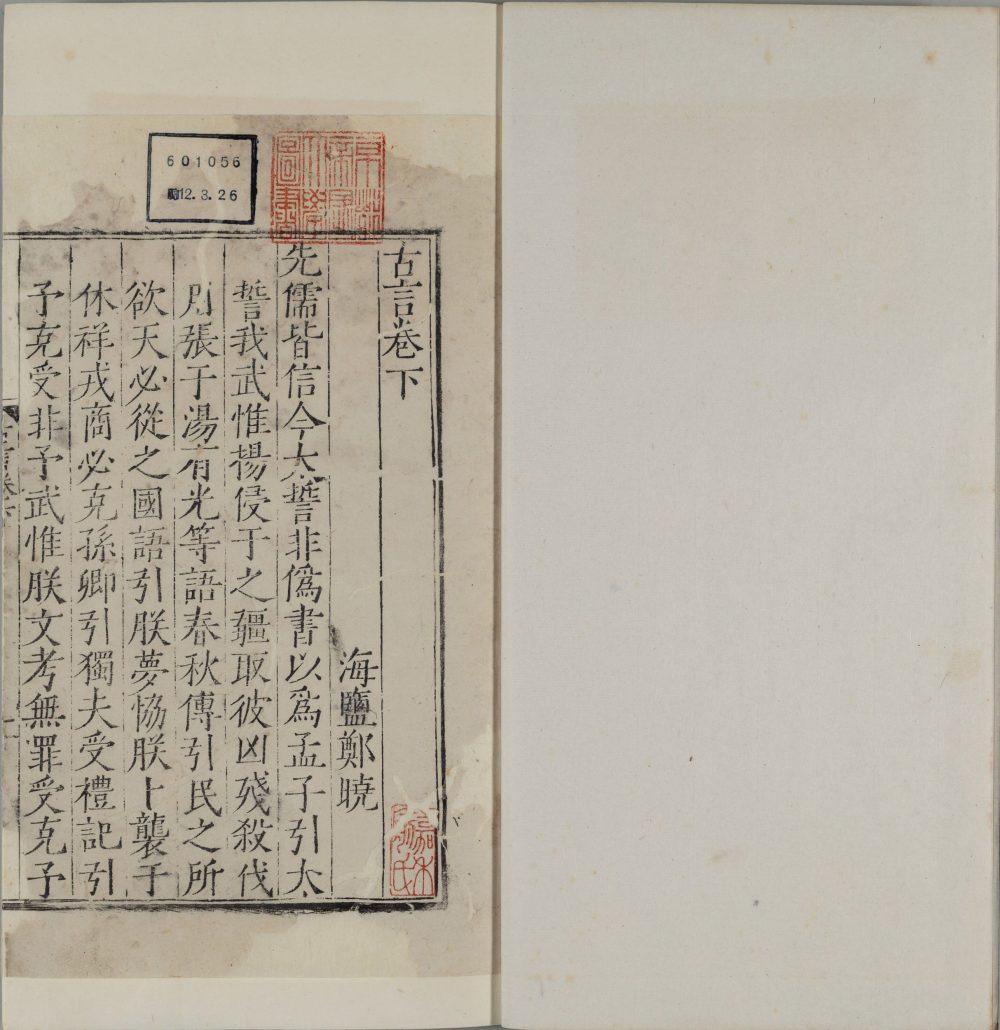 601056
12.3.26
東京
帝國
大學
圖書
古言卷下
海鹽鄭曉
先儒皆信今太誓非僞書以爲孟子引太
誓我武惟揚侵于之疆取彼凶殘殺伐
用張于湯有光等語春秋傳引民之所
欲天必從之國語引朕夢恊朕卜襲于
休祥戎商必克孫卿引獨夫受禮記引
予克受非予武惟朕文考無罪受克予